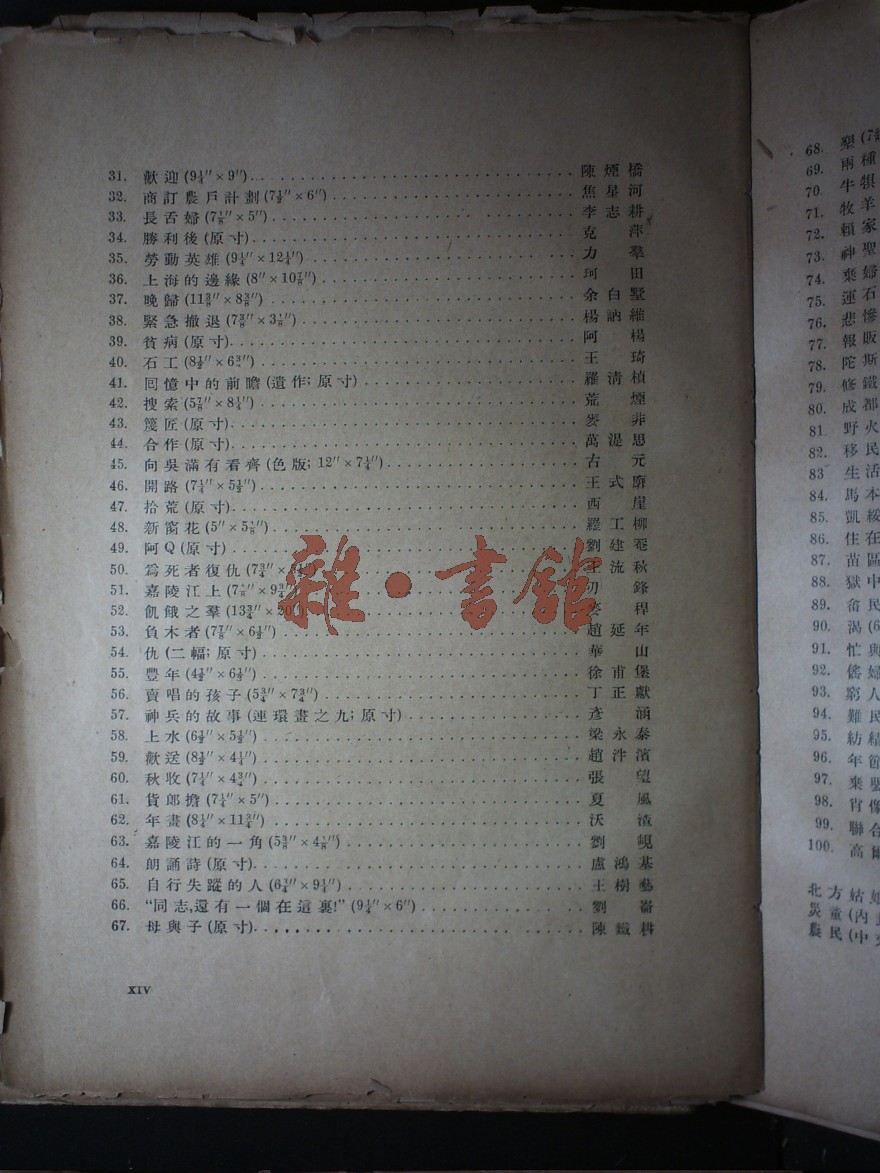 31. 歡迎(9¼″×9″)... 陳煙橋
32. 商訂農戶計劃(7½″×6″) 焦星河
33. 長舌婦(7⅞″×5″) 李志耕
34. 勝利後(原寸) 克萍
35. 勞動英雄(9¼″×12¼″) 力羣
36. 上海的邊緣(8″×10⅞″) 珂田
37. 晚歸(11⅜″×8¾″) 余白墅
38. 緊急撤退 楊訥維
39. 貧病(原寸) 阿楊
40. 石工 王琦
41. 囘憶中的前瞻(遺作; 原寸) 羅清楨
42. 搜索(5⅞″×8¼″) 荒煙
43. 篾匠(原寸) 麥非
44. 合作(原寸) 萬湜思
45. 向吳滿有看齊(色版; 12″×7¼″) 古元
46. 開路(7¼″×5½″) 王式廓
47. 拾荒(原寸) 西崖
48. 新窗花 羅工柳
49. 阿Q(原寸) 劉建菴
50. 爲死者復仇 王流秋
51. 嘉陵江上 刃鋒
52. 飢餓之羣 麥稈
53. 負木者(7⅞″×6½″) 趙延年
54. 仇(二幅; 原寸) 華山
55. 豐年(4½″×6½″) 徐甫堡
56. 賣唱的孩子(5¾″×7¾″) 丁正獻
57. 神兵的故事(連環畫之九; 原寸) 彥涵
58. 上水(6½″×5½″) 梁永泰
59. 歡送(8½″×4¼″) 趙泮濱
60. 秋收(7¼″×4¾″) 張望
61. 貨郎擔(7¼″×5″) 夏風
62. 年畫(8¼″×11¾″) 沃渣
63. 嘉陵江的一角 劉峴
64. 朗誦詩(原寸) 盧鴻基
65. 自行失蹤的人(6¾″×9¼″) 王樹藝
66. “同志,還有一個在這裏!”(9¼″×6″) 劉崙
67. 母與子(原寸) 陳鐵耕
XIV
雜·書館
68. 墾
69. 兩種
70. 牛犋
71. 牧羊
72. 賴家
73. 神聖
74. 棄婦
75. 運石
76. 悲慘
77. 報販
78. 陀斯
79. 修鐵
80. 成都
81. 野火
82. 移民
83. 生活
84. 馬本
85. 凱綏
86. 住在
87. 苗區
88. 獄中
89. 畲民
90. 渴(6
91. 忙與
92. 傜婦
93. 窮人
94. 難民
95. 紡
96. 年節
97. 乘
98. 肖像
99. 聯合
100. 高爾
北方姑娘
災童(內
農民(中